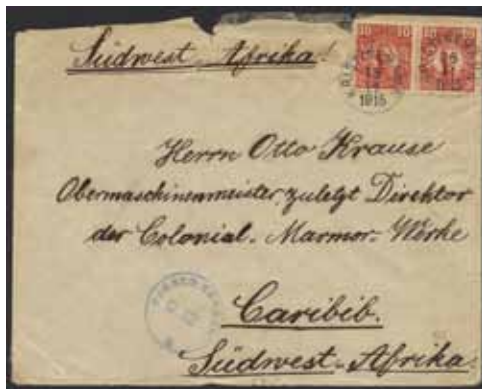 Südwest-Afrika!
10 10
1915
1915
Herrn Otto Krause
Obermaschinenmeister, zuletzt Direktor
der Colonial-Marmor-Werke
Caribib.
Südwest-Afrika